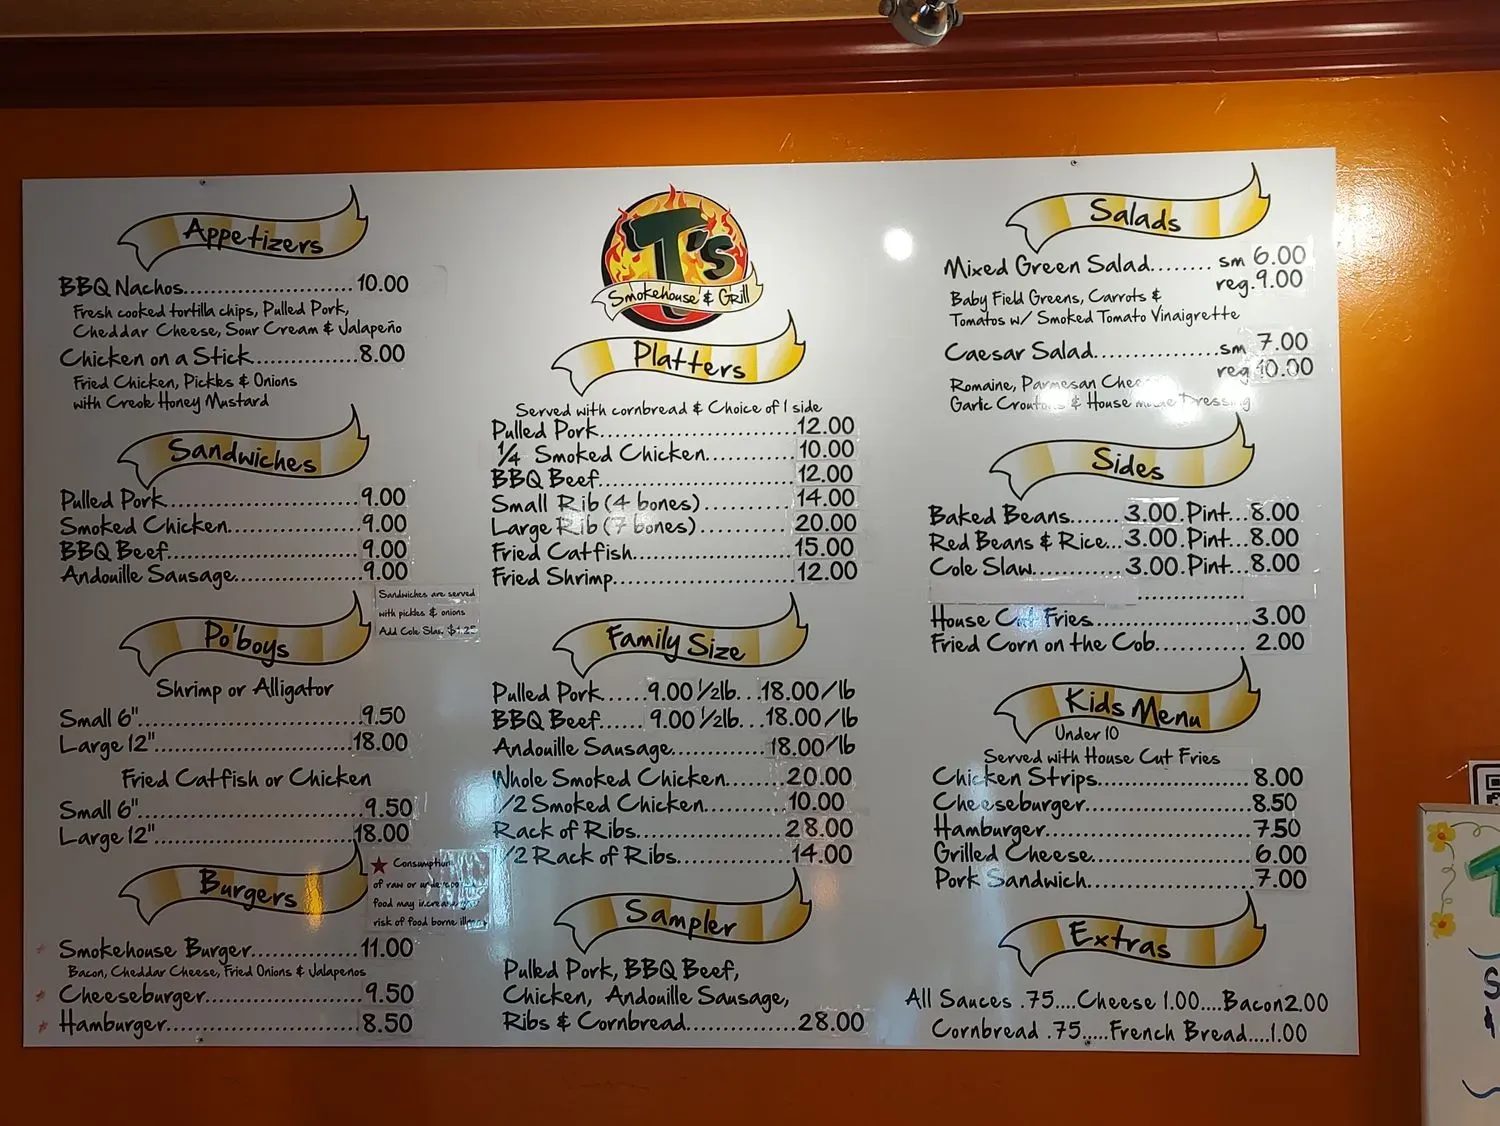 Appetizers
BBQ Nachos......................10.00
Fresh cooked tortilla chips, Pulled Pork,
Cheddar Cheese, Sour Cream & Jalapeño
Chicken on a Stick.............8.00
Fried Chicken, Pickles & Onions
with Creole Honey Mustard
Sandwiches
Pulled Pork........................9.00
Smoked Chicken................9.00
BBQ Beef........................9.00
Andouille Sausage...............9.00
Sandwiches are served
with pickles & onions
Add Cole Slaw $1.25
Po'boys
Shrimp or Alligator
Small 6"............................9.50
Large 12".........................18.00
Fried Catfish or Chicken
Small 6"............................9.50
Large 12".........................18.00
Burgers
★ Consumption
of raw or undercooked
food may increase your
risk of food borne illness
* Smokehouse Burger.............11.00
Bacon, Cheddar Cheese, Fried Onions & Jalapenos
* Cheeseburger....................9.50
* Hamburger.........................8.50
T's
Smokehouse & Grill
Platters
Served with cornbread & Choice of 1 side
Pulled Pork........................12.00
1/4 Smoked Chicken...........10.00
BBQ Beef........................12.00
Small Rib (4 bones)............14.00
Large Rib (7 bones)............20.00
Fried Catfish....................15.00
Fried Shrimp.....................12.00
Family Size
Pulled Pork.....9.00 1/2lb...18.00/lb
BBQ Beef......9.00 1/2lb...18.00/lb
Andouille Sausage.............18.00/lb
Whole Smoked Chicken.......20.00
1/2 Smoked Chicken..........10.00
Rack of Ribs....................28.00
1/2 Rack of Ribs...............14.00
Sampler
Pulled Pork, BBQ Beef,
Chicken, Andouille Sausage,
Ribs & Cornbread..............28.00
Salads
Mixed Green Salad........ sm 6.00
reg. 9.00
Baby Field Greens, Carrots &
Tomatos w/ Smoked Tomato Vinaigrette
Caesar Salad................sm 7.00
reg 10.00
Romaine, Parmesan Cheese
Garlic Croutons & House made Dressing
Sides
Baked Beans.......3.00.Pint...8.00
Red Beans & Rice...3.00.Pint...8.00
Cole Slaw............3.00.Pint...8.00
House Cut Fries....................3.00
Fried Corn on the Cob...........2.00
Kids Menu
Under 10
Served with House Cut Fries
Chicken Strips....................8.00
Cheeseburger.....................8.50
Hamburger..........................7.50
Grilled Cheese....................6.00
Pork Sandwich....................7.00
Extras
All Sauces .75....Cheese 1.00....Bacon 2.00
Cornbread .75.....French Bread....1.00